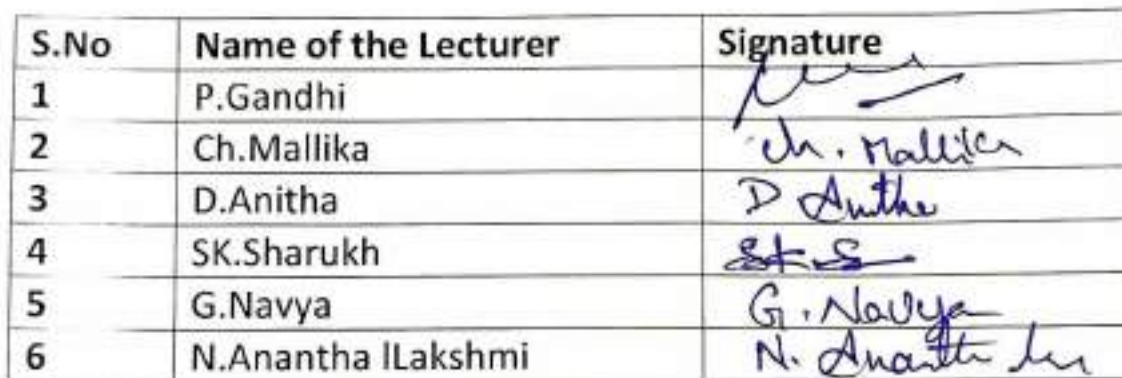 S.No Name of the Lecturer Signature
1 P.Gandhi
2 Ch.Mallika Ch. Mallika
3 D.Anitha D Anitha
4 SK.Sharukh SK.S
5 G.Navya G. Navya
6 N.Anantha lLakshmi N. Anantha